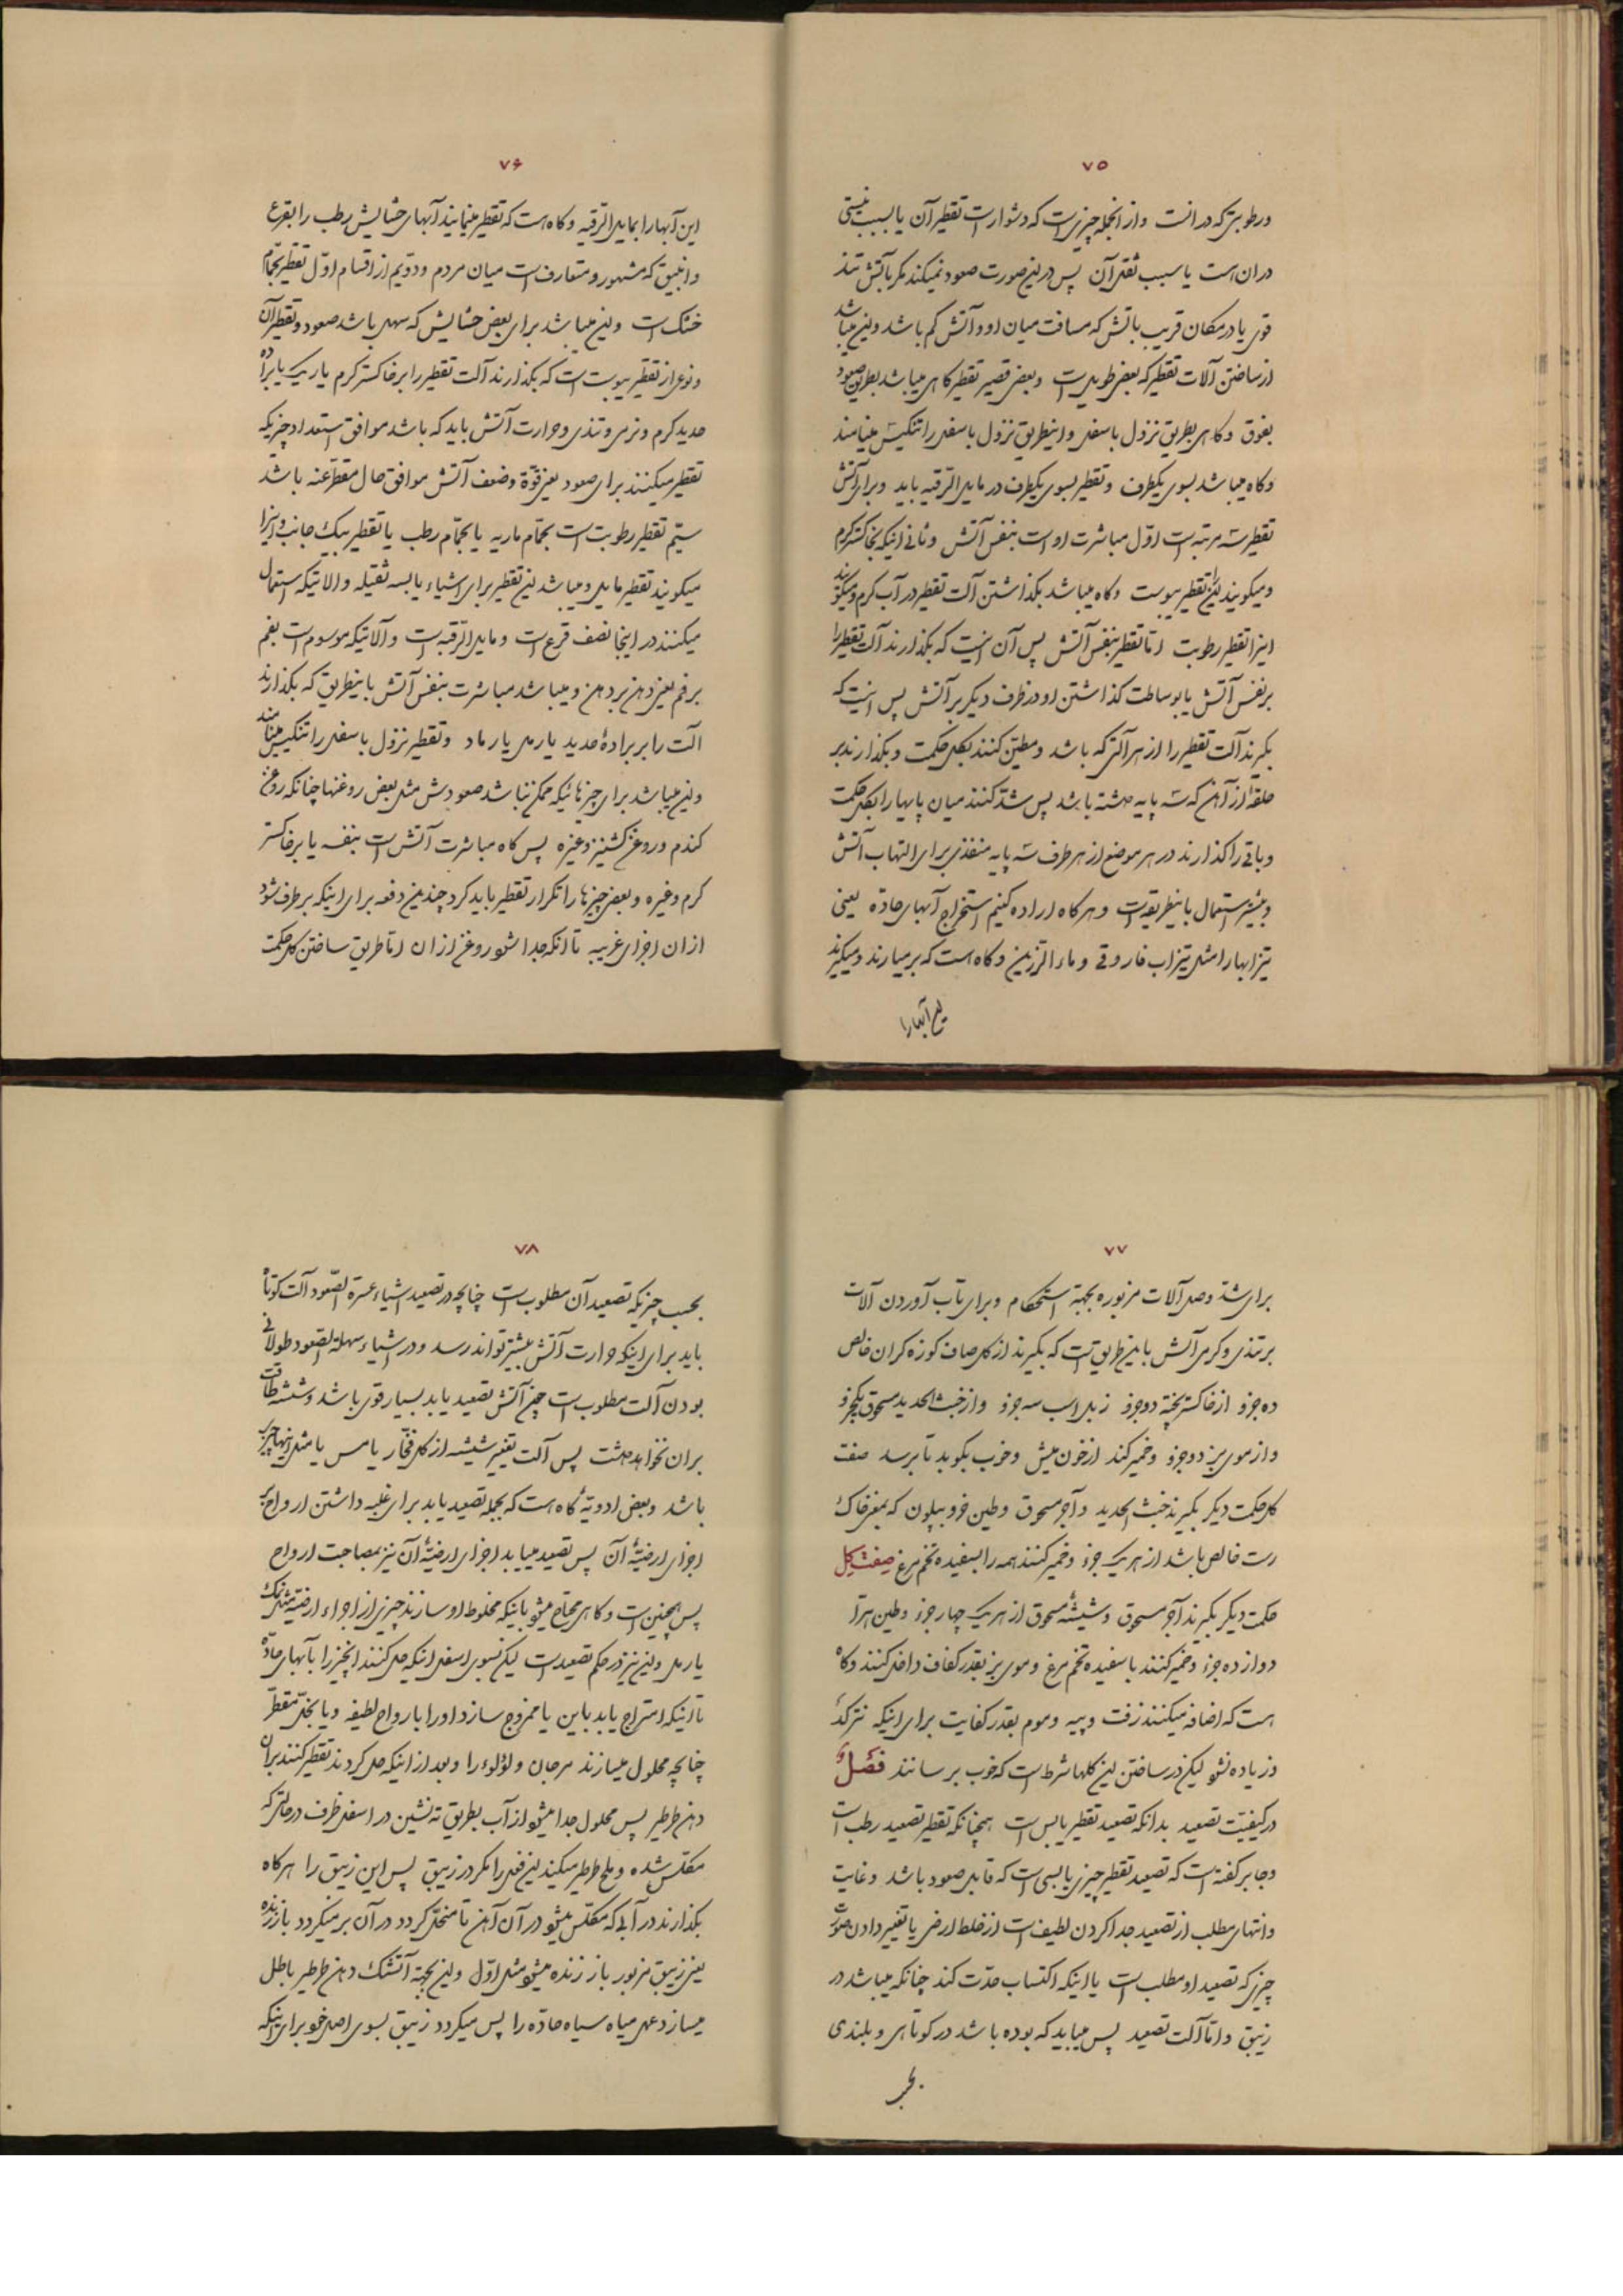 ۷۵
ورطوبتی که در انست واز انجمله چیزیست که دشوار است تقطیر آن یا بسبب یبسی
در ان است یا سبب ثقل آن پس در این صورت صعود نمیکند مکر بآتش تند
قوی یا در مکان قریب باتش که مسافت میان او و آتش کم باشد و این میباشد
از ساختن آلات تقطیر که بعضی طویل است وبعضی قصیر تقطیر کاهی میباشد بطریق صعود
بفوق وکاهی بطریق نزول باسفل واینطریق نزول باسفل را تنکیس مینامند
وکاه میباشد بسوی یکطرف وتقطیر بسوی یکطرف در مایل الرقبه باید وبرای آتش
تقطیر سه مرتبه است اوّل مباشرت او است بنفس آتش وثانی اینکه بخاکستر کرم
ومیکویند این را تقطیر یبوست وکاه میباشد بکذاشتن آلت تقطیر در آب کرم ومیکویند
اینرا تقطیر رطوبت امّا تقطیر بنفس آتش پس آن اینست که بکذارند آلت تقطیر را
بر نفس آتش یا بوساطت کذاشتن او در ظرف دیکر بر آتش پس اینست که
بکیرند آلت تقطیر را از هر آلتی که باشد ومطیّن کنند بکل حکمت وبکذارند بر
حلقه از آهن که سه پایه داشته باشد پس سدّ کنند میان پایها را بکل حکمت
وباقی را کذارند در هر موضع از هر طرف سه پایه منفذی برای التهاب آتش
وبیشتر استعمال باینطریقه است وهر کاه اراده کنیم استخراج آبهای حادّه یعنی
تیزابها را مثل تیزاب فاروقی وماء الرزین وکاه است که بر میارند ومیکیرند
این آبها را
۷۶
این آبها را بمایل الرقبه وکاه است که تقطیر مینمایند آبهای حشایش رطب را بقرع
وانبیق که مشهور ومتعارف است میان مردم ودوّیم از اقسام اوّل تقطیر بحمّام
خشک است واین میباشد برای بعض حشایش که سهل باشد صعود وتقطیر آن
ونوع از تقطیر یبوست است که بکذارند آلت تقطیر را بر خاکستر کرم یا ریک یا براده
حدید کرم ونرمی وتندی وحرارت آتش باید که باشد موافق استعداد چیزیکه
تقطیر میکنند برای صعود یعنی قوّة وضعف آتش موافق حال مقطّر عنه باشد
سیّم تقطیر رطوبت است بحمّام ماریه یا بحمّام رطب یا تقطیر بیک جانب واینرا
میکویند تقطیر مایل ومیباشد این تقطیر برای اشیاء یابسه ثقیله والاتیکه استعمال
میکنند در اینجا نصف قرع است ومایل الرّقبه است وآلاتیکه موسوم است بفم
بر فم یعنی دهن بر دهن ومیباشد مباشرت بنفس آتش باینطریق که بکذارند
الت را بر برادهٔ حدید یا رمل یا رماد وتقطیر نزول باسفل را تنکیس مینامند
واین میباشد برای چیزهائیکه ممکن نباشد صعودش مثل بعض روغنها چنانکه روغن
کندم وروغن کشنیز وغیره پس کاه مباشرت آتش است بنفسه یا بر خاکستر
کرم وغیره وبعض چیزها را تکرار تقطیر باید کرد چندین دفعه برای اینکه بر طرف شود
از ان اجزای غریبه تا انکه جدا شود روغن از ان امّا طریق ساختن کل حکمت
۷۷
برای سدّ وصل آلات مزبوره بجهة استحکام وبرای تاب آوردن آلات
بر تندی وکرمی آتش باینطریق است که بکیرند از کل صاف کوزه کران خالص
ده جزو از خاکستر پخته دو جزو زبل اسب سه جزو واز خبث الحدید مسحوق یکجزو
واز موی بز دو جزو وخمیر کند از خون میش وخوب بکوبد تا برسد صفت
کل حکمت دیکر بکیرند خبث الحدید وآجر مسحوق وطین خروبیلون که بمعنی خاک
رست خالص باشد از هریک جزء وخمیر کنند همه را بسفیده تخم مرغ صفت کل
حکمت دیکر بکیرند آجر مسحوق وشیشهٔ مسحوق از هریک چهار جزء وطین
دوازده جزء وخمیر کنند با سفیده تخم مرغ وموی بز بقدر کفاف داخل کنند وکاه
است که اضافه میکنند زفت وپیه وموم بقدر کفایت برای اینکه نترکد
وزیاده نشود لیکن در ساختن این کلها شرط است که خوب برسانند فصل
در کیفیّت تصعید بدانکه تصعید تقطیر یابس است همچنانکه تقطیر تصعید رطب است
وجابر کفته است که تصعید تقطیر چیزی یابسی است که قابل صعود باشد وغایت
وانتهای مطلب از تصعید جدا کردن لطیف است از خلط ارضی یا تغییر دادن صورت
چیزی که تصعید او مطلب است یا اینکه اکتساب حدّت کند چنانکه میباشد در
زیبق وامّا آلت تصعید پس میباید که بوده باشد در کوتاهی وبلندی
بحسب
۷۸
بحسب چیزیکه تصعید آن مطلوب است چنانچه در تصعید اشیاء عسرة الصّعود آلت کوتاه
باید برای اینکه حرارت آتش بیشتر تواند رسد ودر اشیاء سهلة الصّعود طولانی
بودن آلت مطلوب است چون آتش تصعید باید بسیار قوی باشد وشیشه طاقت
بران نخواهد داشت پس آلت تغییر شیشه از کل فخّار یا مس یا مثل اینها چیزی
باشد وبعض ادویهٔ کاه است که بجمله تصعید یابد برای غلبه داشتن ارواح بر
اجزای ارضیّهٔ آن پس تصعید مییابد اجزای ارضیّهٔ آن نیز بمصاحبت ارواح
پس همچنین است وکاهی محتاج میشود باینکه مخلوط او سازند چیزی از اجزاء ارضیّه مثل نمک
یا رمل واین نیز در حکم تصعید است لیکن بسوی اسفل اینکه حل کنند انچیز را بآبهای حادّه
تا اینکه امتزاج یابد باین یا ممزوج سازد او را با رواح لطیفه ویا بخلّ مقطّر
چنانچه محلول میسازند مرجان ولؤلوء را وبعد از اینکه حل کردند تقطیر کنند بران
دهن طرطیر پس محلول جدا میشود از آب بطریق ته نشین در اسفل ظرف در حالتی که
مکلّس شده وملح طرطیر میکند این فعل را مکر در زیبق پس این زیبق را هرکاه
بکذارند در آبی که مکلّس میشود در آن آهن تا منحلّ کردد در آن بر میکردد باز زنده
یعنی زیبق مزبور باز زنده میشود مثل اوّل واین بجهة آنستکه دهن طرطیر باطل
میسازد عمل میاه سیاه حادّه را پس میکردد زیبق بسوی اصل خود برای اینکه